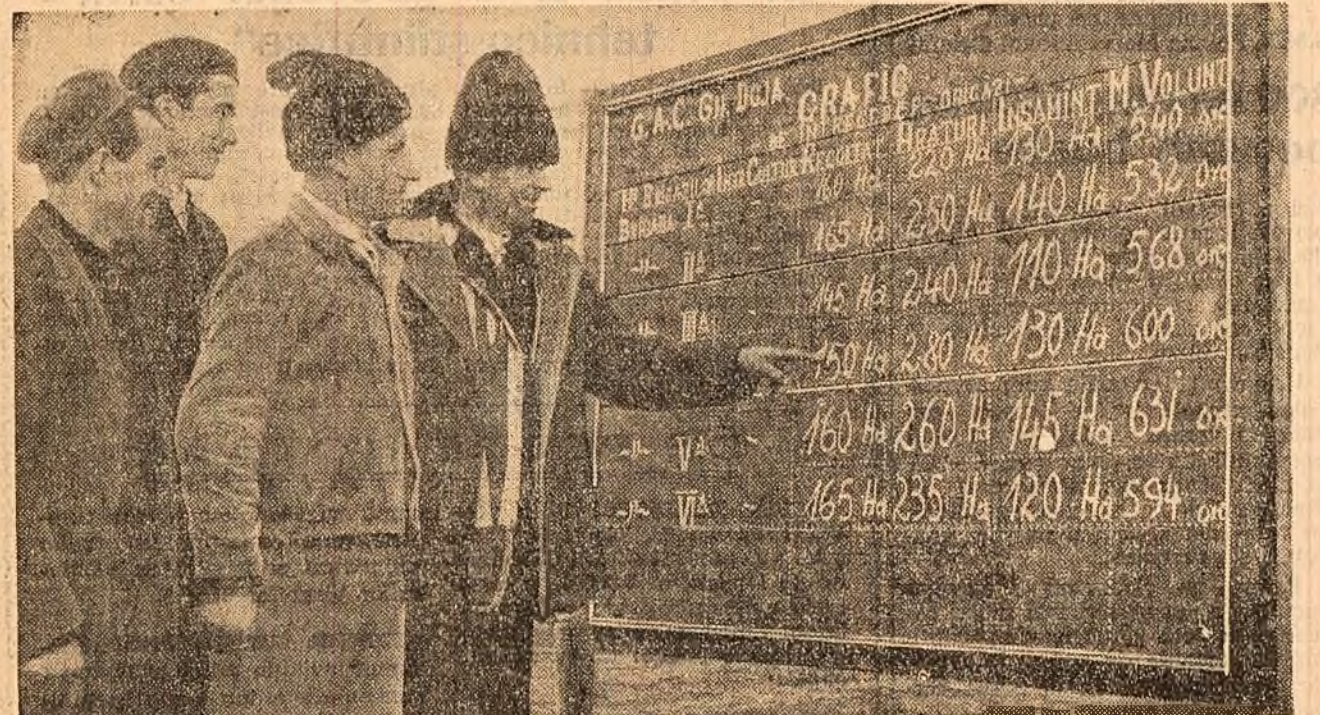 G.A.C. GH. DOJA GRAFIC
DE
CULTUR RECOLTAT ARATURI INSAMINT M. VOLUNT
BRIGADA I A - 160 Ha 220 Ha 130 Ha 540 ore
-"- II A - 165 Ha 250 Ha 140 Ha 532 ore
-"- III A - 145 Ha 240 Ha 110 Ha 568 ore
150 Ha 280 Ha 130 Ha 600 ore
-"- V A - 160 Ha 260 Ha 145 Ha 631 ore
-"- VI A - 165 Ha 235 Ha 120 Ha 594 ore